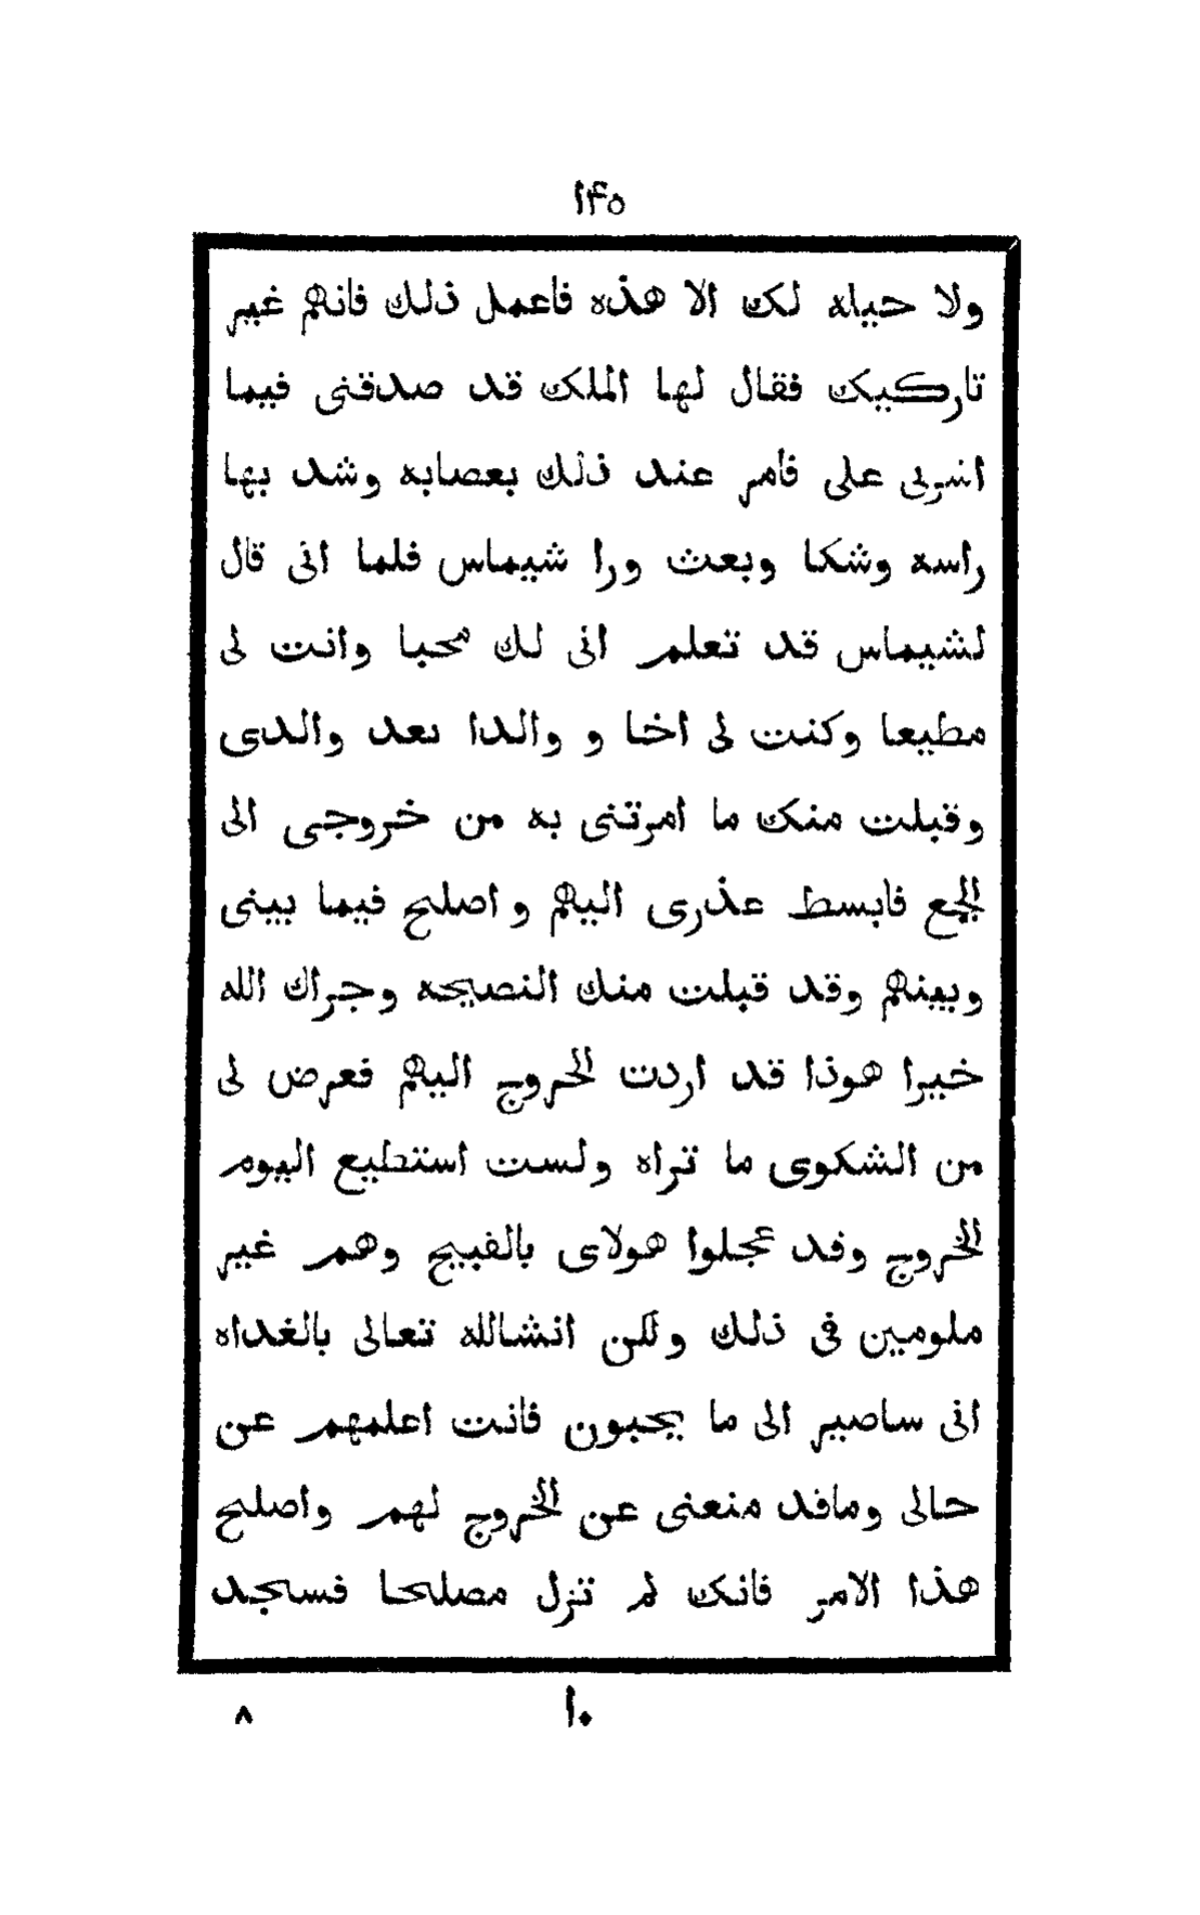 ١٤٥
ولا حياه لك الا هذه فاعمل ذلك فانهم غير
تاركيك فقال لها الملك قد صدقنى فيما
اشربى على فامر عند ذلك بعصابه وشد بها
راسه وشكا وبعث ورا شيماس فلما اتى قال
لشيماس قد تعلم انى لك محبا وانت لى
مطيعا وكنت لى اخا و والدا بعد والدى
وقبلت منك ما امرتنى به من خروجى الى
الجمع فابسط عذرى اليهم و اصلح فيما بينى
وبينهم وقد قبلت منك النصيحه وجراك الله
خيرا هوذا قد اردت الخروج اليهم فعرض لى
من الشكوى ما تراه ولست استطيع اليوم
الخروج وفد عجلوا هولاى بالقبيح وهم غير
ملومين فى ذلك ولكن انشالله تعالى بالغداه
انى ساصير الى ما يحبون فانت اعلمهم عن
حالى ومافد منعنى عن الخروج لهم واصلح
هذا الامر فانك لم تزل مصلحا فسجد
١٠
٨